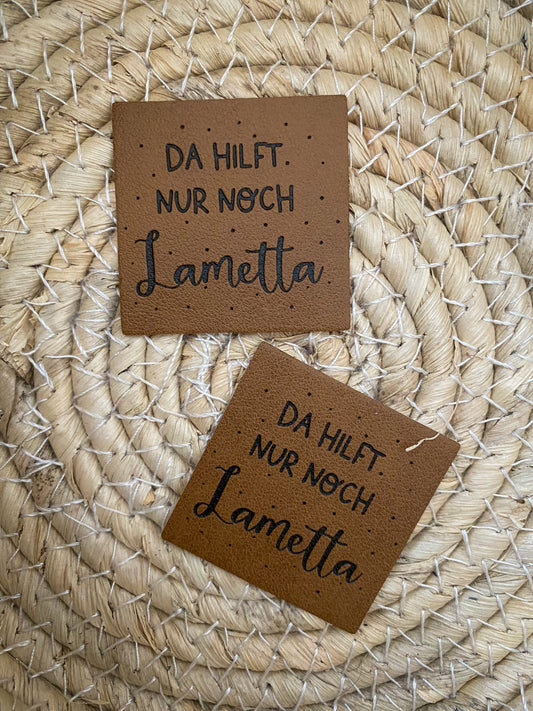 DA HILFT
NUR NOCH
Lametta
DA HILFT
NUR NOCH
Lametta